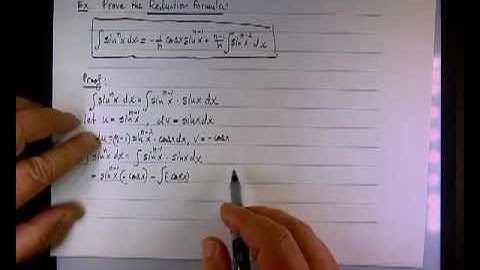 Ex. Prove the Reduction Formula:
∫sinⁿx dx = -1/n cosx sinⁿ⁻¹x + n-1/n ∫sinⁿ⁻²x dx
Proof:
∫sinⁿx dx = ∫sinⁿ⁻¹x · sinx dx
Let u = sinⁿ⁻¹x, dv = sinx dx
du = (n-1) sinⁿ⁻²x · cosx dx, v = -cosx
∫sinⁿx dx = ∫sinⁿ⁻¹x · sinx dx
= sinⁿ⁻¹x (-cosx) - ∫(-cosx)